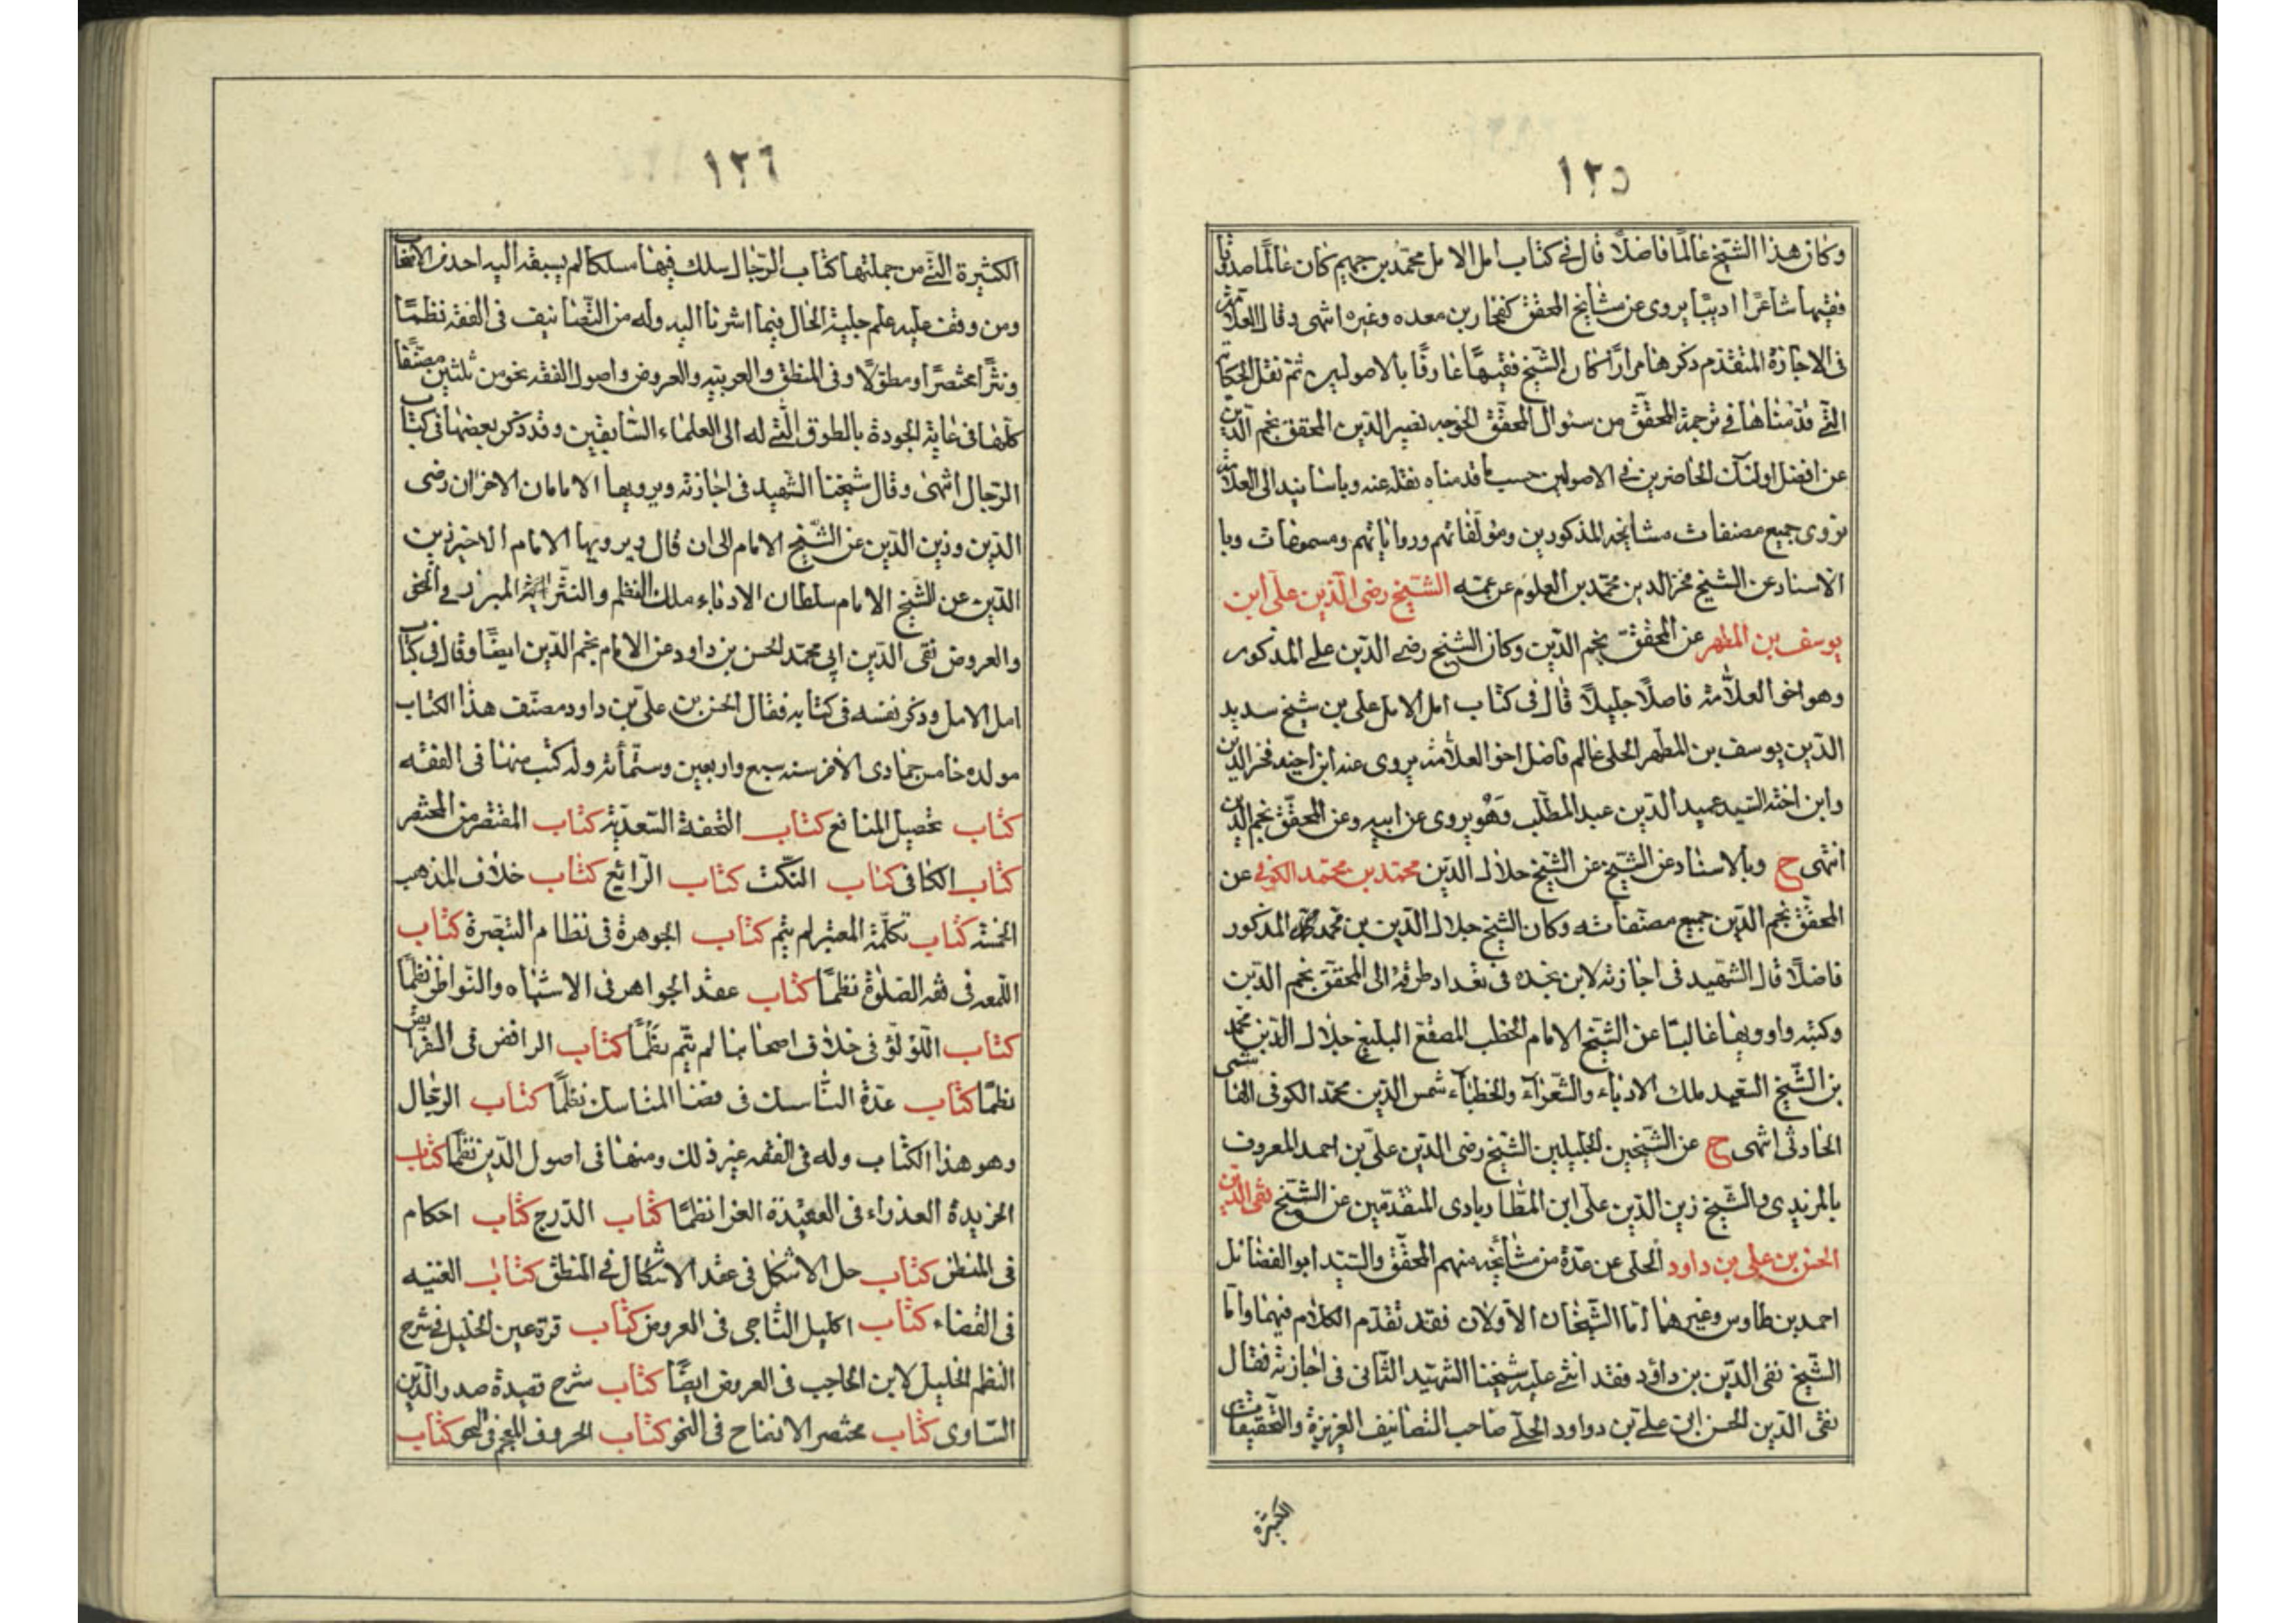 ١٢٥
وكان هذا الشيخ عالمًا فاضلًا قال في كتاب امل الامل محمّد بن جهيم كان عالمًا صدوقا
فقيها شاعرًا اديبًا يروى عن مشايخ المحقق كفخار بن معده وغيره انتهى وقال العلامة
فى الاجازة المتقدم ذكرها مرارًا كان الشيخ فقيهًا عارفًا بالاصولين ثم نقل الحكاية
التى قدمناها في ترجمة المحقّق من سئوال المحقق الخوجه نصير الدين المحقق نجم الدين
عن افضل اولئك الحاضرين في الاصولين حسب ما قدمناه نقله عنه وباسانيد الى العلامة
نروى جميع مصنفات مشايخه المذكورين ومؤلّفاتهم ورواياتهم ومسموعات وبا
الاسناد عن الشيخ فخر الدين محمّد بن العلوم عن عمّه الشيخ رضى الدين على ابن
يوسف بن المطهر عن المحقق نجم الدين وكان الشيخ رضي الدين على المذكور
وهو اخو العلامة فاضلًا جليلًا قال فى كتاب امل الامل على بن شيخ سديد
الدين يوسف بن المطهر الحلى عالم فاضل اخو العلامة يروى عنه ابن اخيه فخر الدين
وابن اخته السيد عميد الدين عبد المطلب وهو يروى عن ابيه وعن المحقّق نجم الدين
انتهى ح وبالاسناد عن الشيخ عن الشيخ جلال الدين محمّد بن محمّد الكوفي عن
المحقّق نجم الدين جميع مصنّفاته وكان الشيخ جلال الدين بن محمد المذكور
فاضلًا قال الشهيد فى اجازته لابن نجده فى تعداد طرقه الى المحقق نجم الدين
وكتبه واوويها غالبًا عن الشيخ الامام الخطب المصقع البليغ جلال الدين محمد
بن الشيخ السعيد ملك الادباء والشعراء والخطباء شمس الدين محمّد الكوفى الهاشمى
الحادثى انتهى ح عن الشيخين الجليلين الشيخ رضى الدين علىّ بن احمد المعروف
بالمزيدى والشيخ زين الدين على ابن المطاربادى المتقدّمين عن الشيخ تقى الدين
الحسن بن على بن داود الحلى عن عدّة من مشائخه منهم المحقّق والسيّد ابو الفضائل
احمد بن طاوس وغيرهما امّا الشّيخان الاولان فقد تقدّم الكلام فيهما وامّا
الشّيخ تقى الدين بن داود فقد اثنى عليه شيخنا الشهيد الثّانى فى اجازته فقال
تقى الدين الحسن ابن على بن دواود الحلّى صاحب التصانيف العزيزة والتحقيقات
الكثيرة
١٢٦
الكثيرة التى من جملتها كتاب الرّجال سلك فيها مسلكا لم يسبقه اليه احد من الاصحاب
ومن وقف عليه علم جلية الحال فيما اشرنا اليه وله من التصانيف فى الفقه نظمًا
ونثرًا مختصرًا ومطولًا وفى المنطق والعربيّه والعروض واصول الفقه نحو من ثلثين مصنّفًا
كلّها فى غاية الجودة بالطوق التى له الى العلماء السّابقين وقد ذكر بعضها فى كتاب
الرّجال انتهى وقال شيخنا الشّهيد فى اجازته ويرويها الامامان الاخران رضى
الدّين وزين الدّين عن الشّيخ الامام الى ان قال ويرويها الامام الاخير زين
الدّين عن الشيخ الامام سلطان الادباء ملك النظم والنّثر المبرز في النحو
والعروض تقى الدّين ابى محمّد الحسن بن داود عن الامام نجم الدّين ايضًا وقال فى كتاب
امل الامل وذكر نفسه فى كتابه فقال الحسن بن علىّ بن داود مصنّف هذا الكتاب
مولده خامس جمادى الاخر سنه سبع واربعين وستّمأئه وله كتب منها فى الفقه
كتاب تحصيل المنافع كتاب التحفة السّعديّه كتاب المقتصر من المختصر
كتاب الكافى كتاب النّكت كتاب الرّائع كتاب خلاف المذهب
الخمسة كتاب تكلّمة المعتبر لم يتم كتاب الجوهرة فى نظام التبصرة كتاب
اللّمعه فى فقه الصّلوة نظمًا كتاب عقد الجواهر فى الاشباه والنّواظر نظمًا
كتاب اللّؤلؤ فى خلاف اصحابنا لم يتم نظمًا كتاب الرافض فى الفرايض
نظمًا كتاب عدّة النّاسك فى قضا المناسك نظمًا كتاب الرّجال
وهو هذا الكتاب وله فى الفقه غير ذلك ومنها فى اصول الدّين نظمًا كتاب
الخريدة العذراء فى العقيدة الغرا نظمًا كتاب الدّرج كتاب احكام
فى المنطق كتاب حل الاشكل فى عقد الاشكال فى المنطق كتاب الغنيه
فى القضاء كتاب اكليل التاجى فى العروض كتاب قرة عين الخليل فى شرح
النظم الخليل لابن الحاجب فى العروض ايضًا كتاب شرح قصيدة صدر الدّين
السّاوى كتاب مختصر الانضاح فى النحو كتاب الحروف المعجم فى النحو كتاب